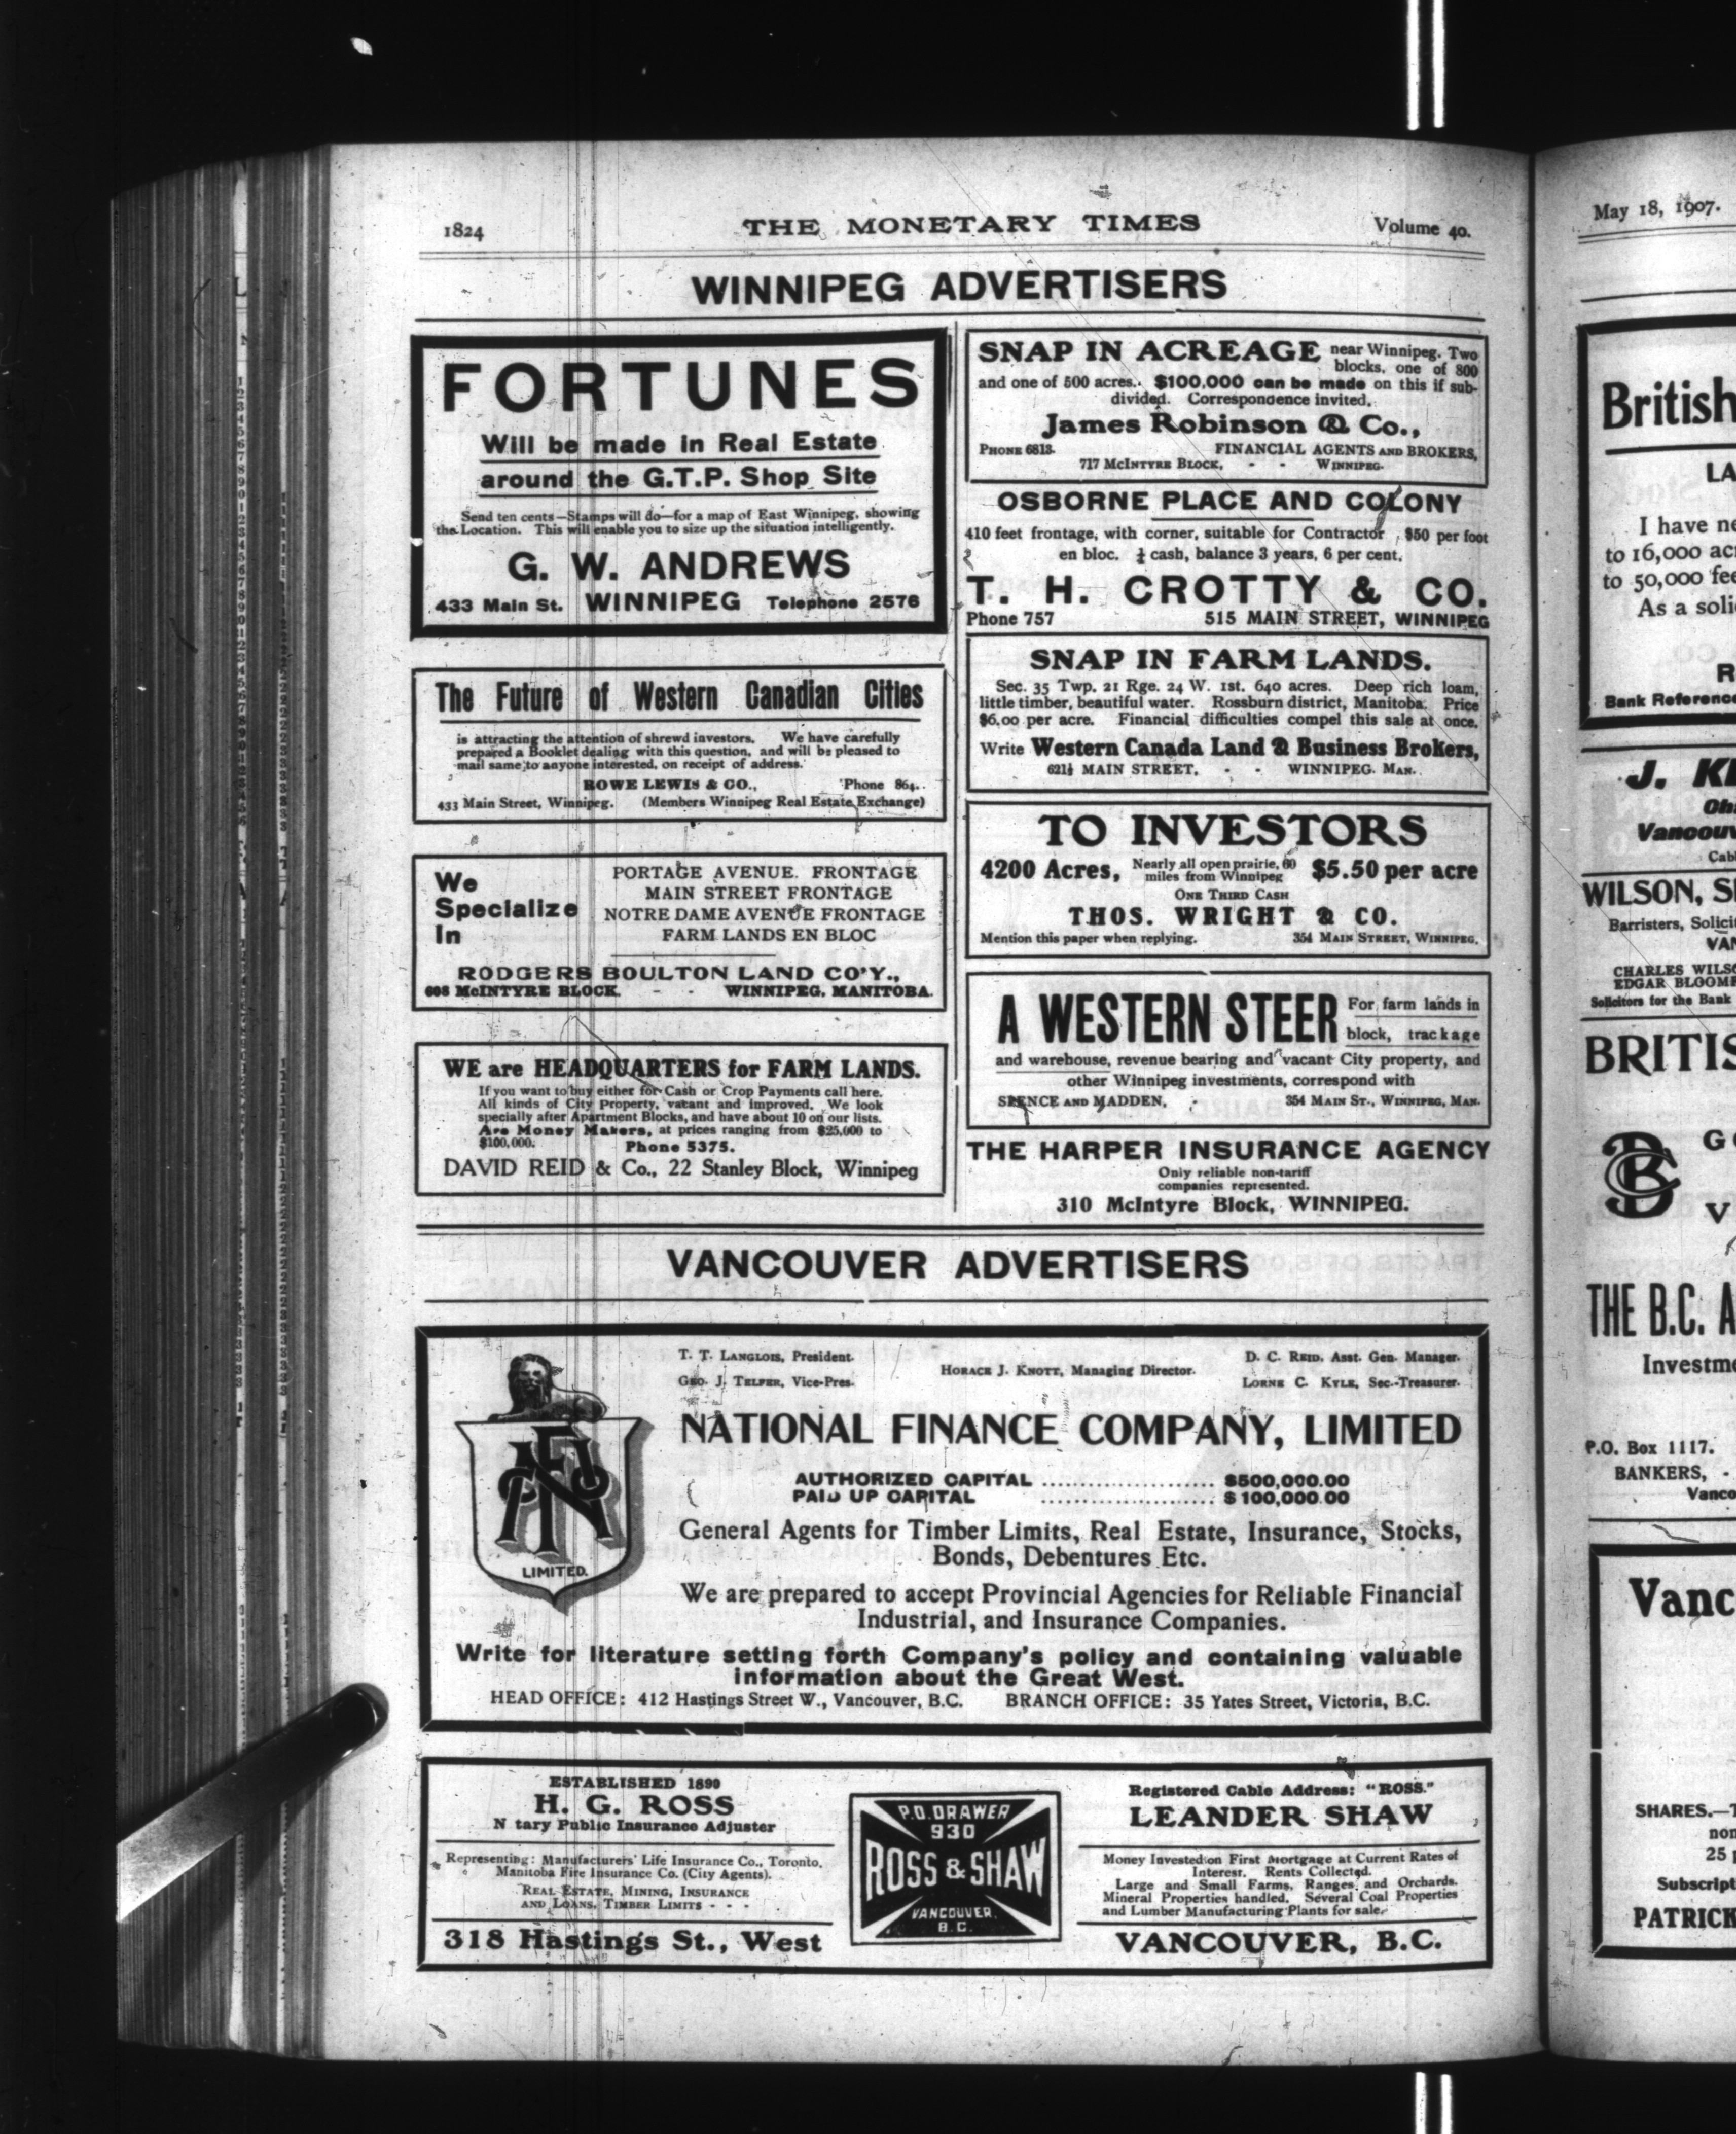 1824
THE MONETARY TIMES
Volume 40.
WINNIPEG ADVERTISERS
FORTUNES
Will be made in Real Estate
around the G.T.P. Shop Site
Send ten cents—Stamps will do—for a map of East Winnipeg, showing
the Location. This will enable you to size up the situation intelligently.
G. W. ANDREWS
433 Main St. WINNIPEG Telephone 2576
The Future of Western Canadian Cities
is attracting the attention of shrewd investors. We have carefully
prepared a Booklet dealing with this question, and will be pleased to
mail same to anyone interested, on receipt of address.
ROWE LEWIS & CO., Phone 864.
433 Main Street, Winnipeg. (Members Winnipeg Real Estate Exchange)
We
Specialize
In
PORTAGE AVENUE. FRONTAGE
MAIN STREET FRONTAGE
NOTRE DAME AVENUE FRONTAGE
FARM LANDS EN BLOC
RODGERS BOULTON LAND CO'Y.,
608 McINTYRE BLOCK. - - WINNIPEG, MANITOBA.
WE are HEADQUARTERS for FARM LANDS.
If you want to buy either for Cash or Crop Payments call here.
All kinds of City Property, vacant and improved. We look
specially after Apartment Blocks, and have about 10 on our lists.
Are Money Makers, at prices ranging from $25,000 to
$100,000. Phone 5375.
DAVID REID & Co., 22 Stanley Block, Winnipeg
SNAP IN ACREAGE near Winnipeg. Two
blocks, one of 800
and one of 500 acres. $100,000 can be made on this if sub-
divided. Correspondence invited.
James Robinson & Co.,
PHONE 6813. FINANCIAL AGENTS AND BROKERS,
717 MCINTYRE BLOCK, - - WINNIPEG.
OSBORNE PLACE AND COLONY
410 feet frontage, with corner, suitable for Contractor $50 per foot
en bloc. ⅓ cash, balance 3 years, 6 per cent.
T. H. CROTTY & CO.
Phone 757 515 MAIN STREET, WINNIPEG
SNAP IN FARM LANDS.
Sec. 35 Twp. 21 Rge. 24 W. 1st. 640 acres. Deep rich loam,
little timber, beautiful water. Rossburn district, Manitoba. Price
$6.00 per acre. Financial difficulties compel this sale at once.
Write Western Canada Land & Business Brokers,
621½ MAIN STREET, - - WINNIPEG. MAN.
TO INVESTORS
4200 Acres, Nearly all open prairie, 60
miles from Winnipeg $5.50 per acre
ONE THIRD CASH
THOS. WRIGHT & CO.
Mention this paper when replying. 354 MAIN STREET, WINNIPEG.
A WESTERN STEER For farm lands in
block, trackage
and warehouse, revenue bearing and vacant City property, and
other Winnipeg investments, correspond with
SPENCE AND MADDEN, - 354 MAIN ST., WINNIPEG, MAN.
THE HARPER INSURANCE AGENCY
Only reliable non-tariff
companies represented.
310 McIntyre Block, WINNIPEG.
VANCOUVER ADVERTISERS
T. T. LANGLOIS, President.
GEO. J. TELFER, Vice-Pres.
HORACE J. KNOTT, Managing Director.
D. C. REID, Asst. Gen. Manager.
LORNE C. KYLE, Sec.-Treasurer.
LIMITED.
NATIONAL FINANCE COMPANY, LIMITED
AUTHORIZED CAPITAL ...................... $500,000.00
PAID UP CAPITAL ...................... $100,000.00
General Agents for Timber Limits, Real Estate, Insurance, Stocks,
Bonds, Debentures Etc.
We are prepared to accept Provincial Agencies for Reliable Financial
Industrial, and Insurance Companies.
Write for literature setting forth Company's policy and containing valuable
information about the Great West.
HEAD OFFICE: 412 Hastings Street W., Vancouver, B.C. BRANCH OFFICE: 35 Yates Street, Victoria, B.C.
ESTABLISHED 1890
H. G. ROSS
N tary Public Insurance Adjuster
Representing: Manufacturers' Life Insurance Co., Toronto.
Manitoba Fire Insurance Co. (City Agents).
REAL ESTATE, MINING, INSURANCE
AND LOANS, TIMBER LIMITS - - -
318 Hastings St., West
P.O. DRAWER
930
ROSS & SHAW
VANCOUVER,
B.C.
Registered Cable Address: "ROSS."
LEANDER SHAW
Money Invested on First Mortgage at Current Rates of
Interest. Rents Collected.
Large and Small Farms, Ranges, and Orchards.
Mineral Properties handled. Several Coal Properties
and Lumber Manufacturing Plants for sale.
VANCOUVER, B.C.
May 18, 1907.
British
LA
I have ne
to 16,000 ac
to 50,000 fee
As a soli
R
Bank Reference
J. K
Vancouv
Cab
WILSON, S
Barristers, Solicit
VAN
CHARLES WILS
EDGAR BLOOMF
Solicitors for the Bank
BRITIS
G
V
THE B.C. A
Investme
P.O. Box 1117.
BANKERS, -
Vanco
Vanc
SHARES.—T
non
25 p
Subscript
PATRICK